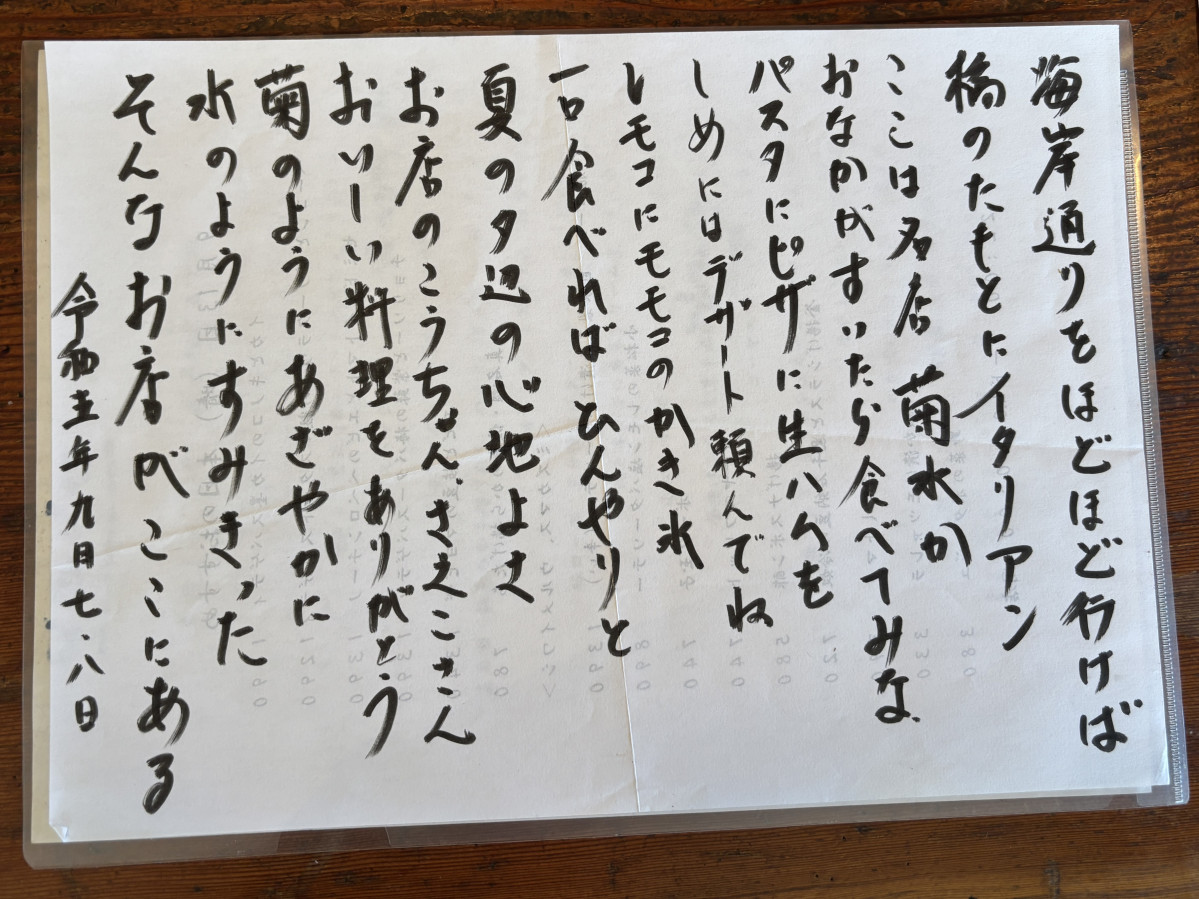 海岸通りをほどほど行けば
橋のたもとにイタリアン
ここは名店 菊水か
おなかがすいたら食べてみな
パスタにピザに生ハムを
しめにはデザート頼んでね
レモコにモモコのかき氷
一口食べれば ひんやりと
夏の夕辺の心地よさ
お店のこうちゃん、さえこさん
おいーい料理をありがとう
菊のようにあざやかに
水のようにすみきった
そんなお店がここにある
令和五年九月七、八日